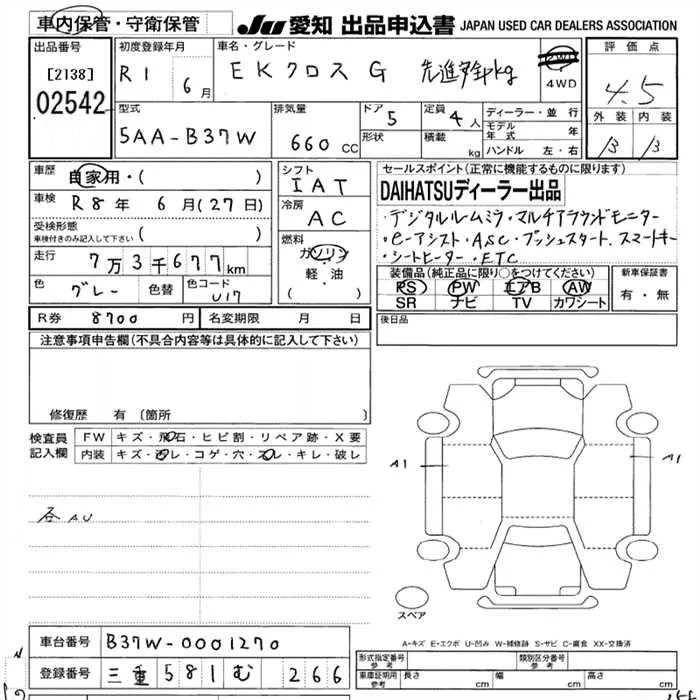 車内保管・守衛保管
JU 愛知 出品申込書 JAPAN USED CAR DEALERS ASSOCIATION
出品番号
[2138]
02542
初度登録年月
R1 6月
車名・グレード
EKクロス G 先進安全pkg
2WD
4WD
評価点
4.5
外装 内装
B B
型式
5AA-B37W
排気量
660 CC
ドア 5
形状
定員 4人
積載 kg
ディーラー・並行
モデル年式 年
ハンドル 左・右
車歴 自家用・( )
車検 R8年 6月(27日)
受検形態
車検付きのみ記入して下さい ( )
走行 7万3千677km
色 グレー 色替 色コード U17
シフト
IAT
冷房
AC
燃料
ガソリン
軽・油
( )
セールスポイント(正常に機能するものに限ります)
DAIHATSUディーラー出品
・デジタルルームミラ・マルチアラウンドモニター
・e-アシスト・ASC・プッシュスタート.スマートキー
・シートヒーター・ETC
装備品(純正品に限り○をつけてください)
PS PW エアB AW
SR ナビ TV カワシート
新車保証書
有・無
R券 8700 円 名変期限 月 日
後日品
注意事項申告欄(不具合内容等は具体的に記入して下さい)
修復歴 有 〔箇所 〕
検査員記入欄
FW キズ・飛石・ヒビ割・リペア跡・X要
内装 キズ・汚レ・コゲ・穴・スレ・キレ・破レ
AU
A1
A1
スペア
A-キズ E-エクボ U-凹み W-補修跡 S-サビ C-腐食 XX-交換済
車台番号 B37W-0001270
登録番号 三重 581 む 266
型式指定番号 参考
類別区分番号 参考
車庫証明用 参考 長さ cm 幅 cm 高さ cm